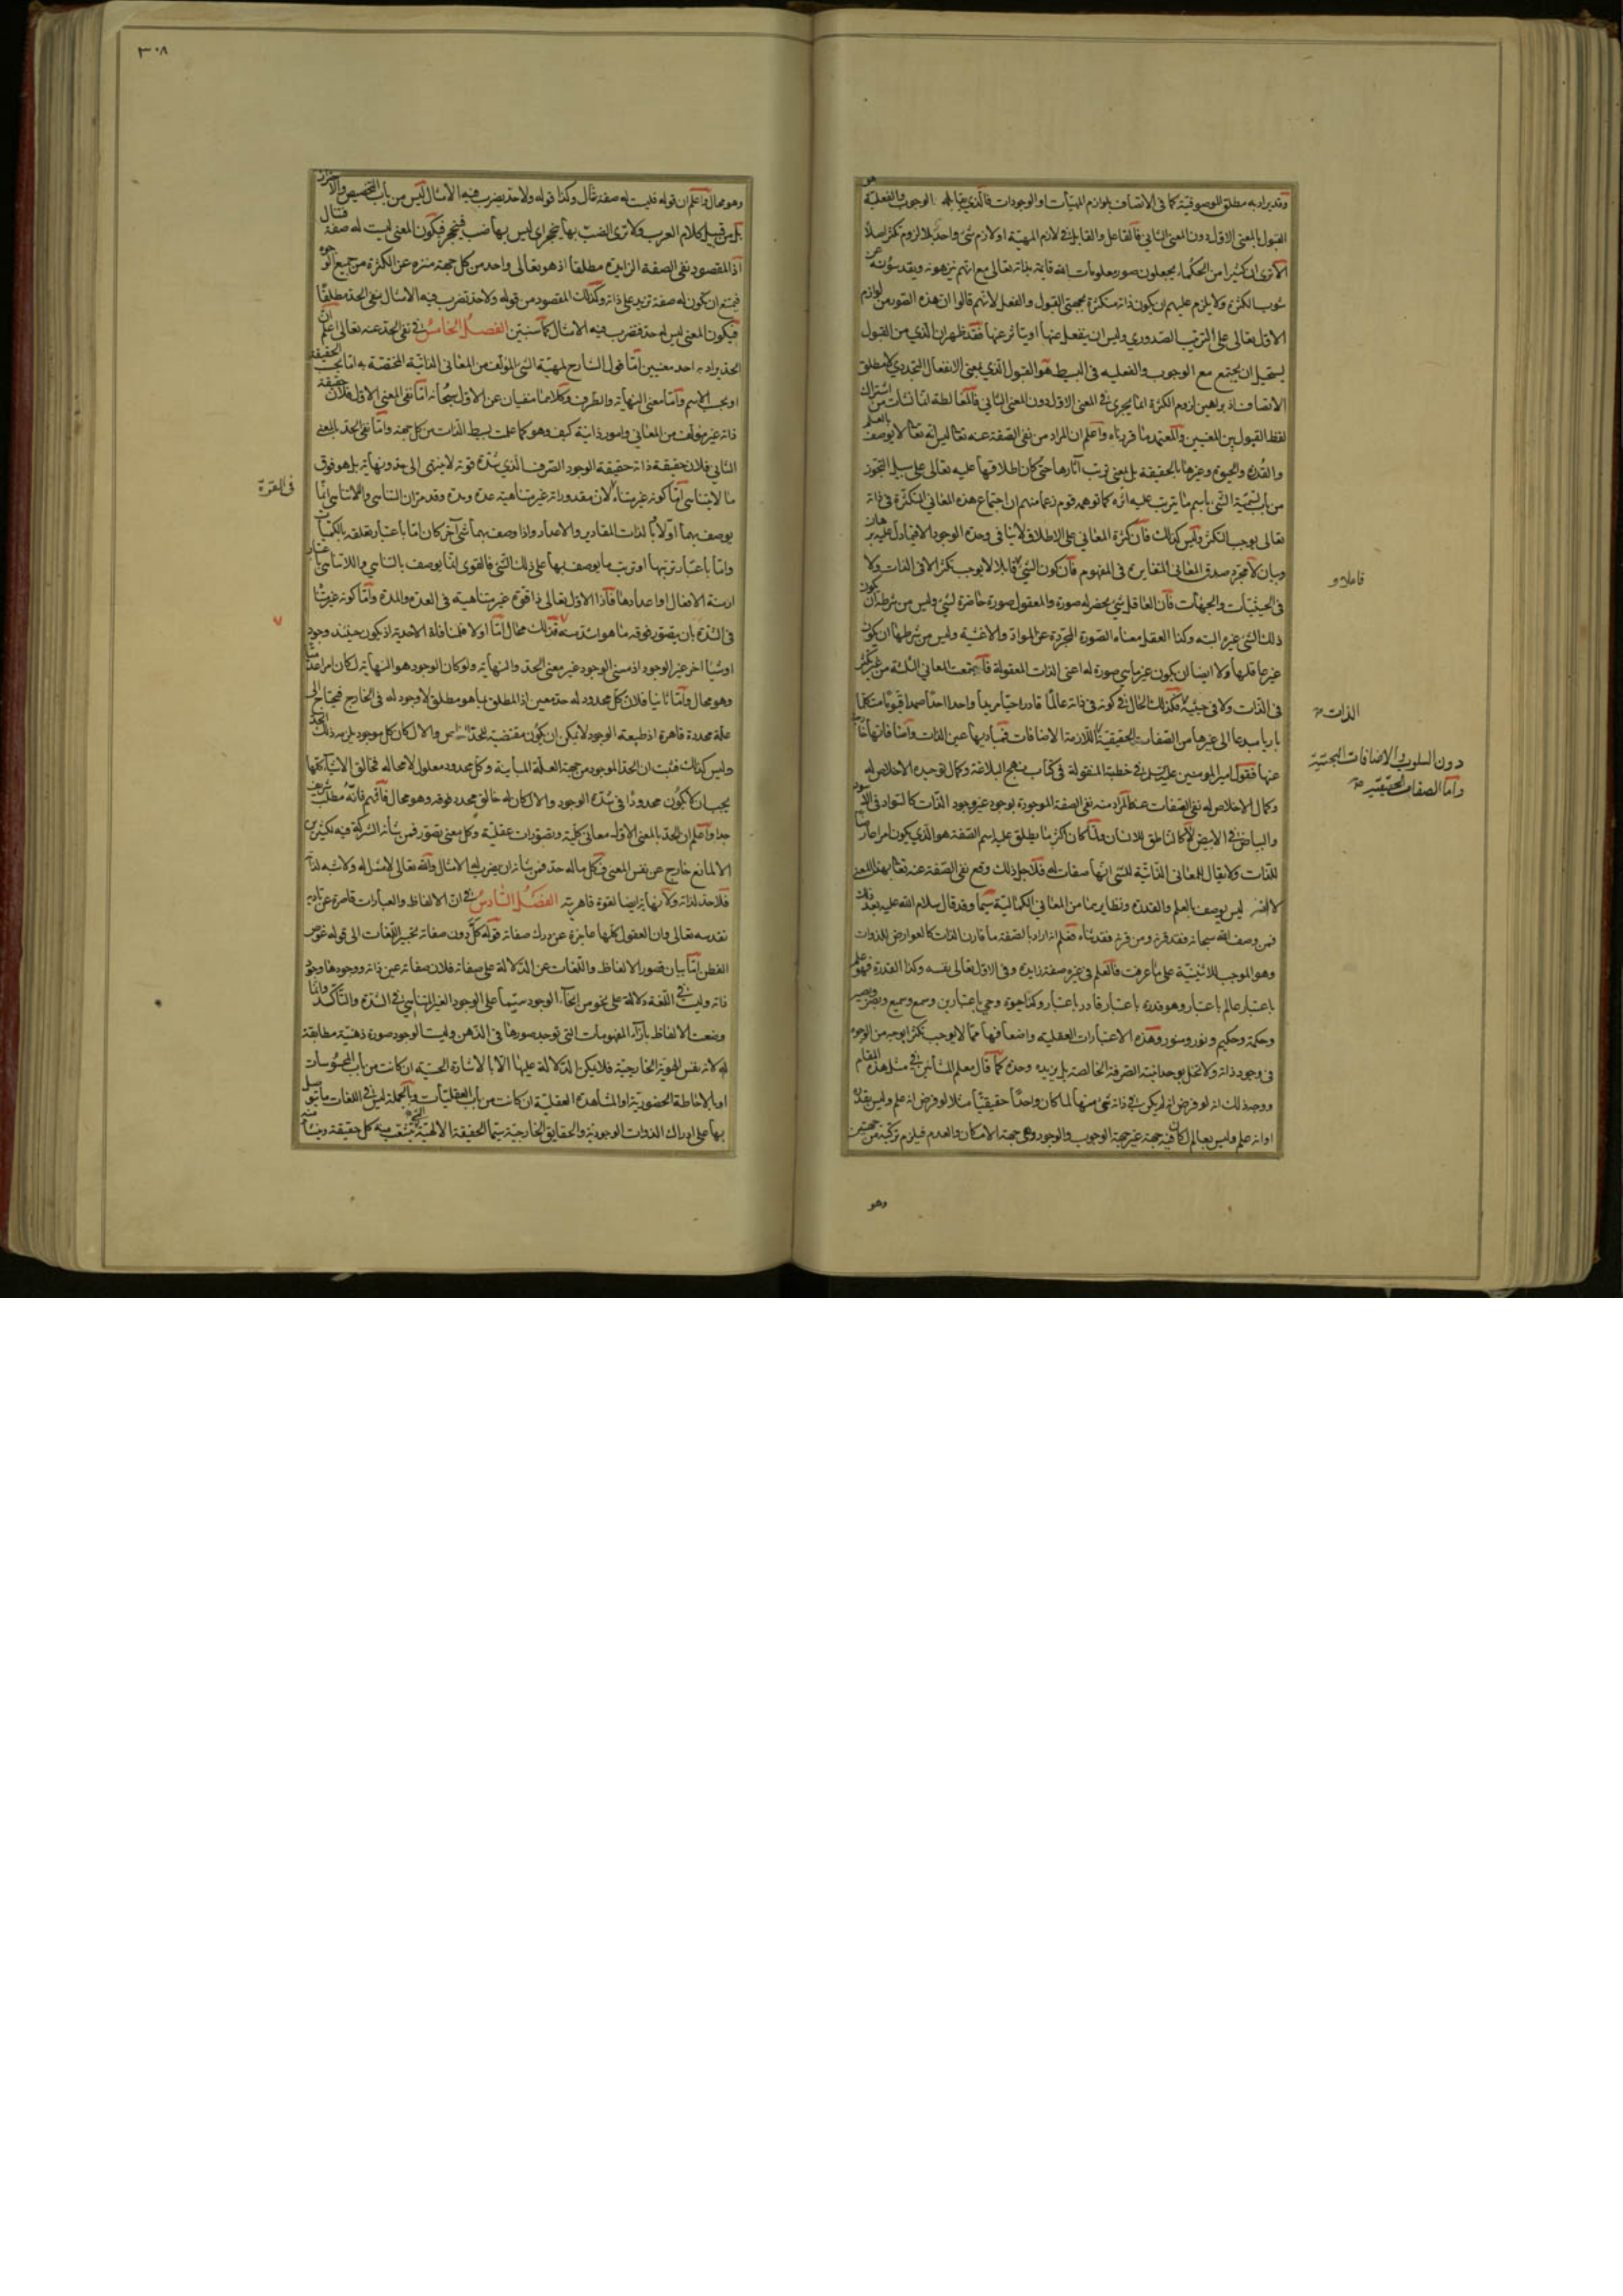 وقد يراد به مطلق الموصوفية كما فى الاتصاف بلوازم المهيات او الوجودات فالذى يقابله الوجوب والفعلية هو
القبول بالمعنى الاول دون المعنى الثانى فالفاعل والقابل فى لازم المهية او لازم شئ واحد بلا لزوم تكثر اصلا
الا ترى ان كثيرا من الحكماء يجعلون صور معلومات الله قائمة بذاته تعالى مع انهم ينزهونه ويقدسونه عن
شوب الكثرة ولا يلزم عليهم ان يكون ذاته متكثرة بجهتى القبول والفعل لانهم قالوا ان هذه الصور من لوازم
الاول تعالى على الترتيب الصدورى وليس ان ينفعل عنها او يتاثر عنها فقد ظهر ان الذى من القبول
يستحيل ان يجتمع مع الوجوب والفعليه فى البسيط هو القبول الذى بمعنى الانفعال التجددى لا مطلق
الاتصاف اذ براهين لزوم الكثرة انما يجرى فى المعنى الاول دون المعنى الثانى فالمغالطة انما نشات من اشتراك
لفظ القبول بين المعنيين والمعتمد ما قررناه واعلم ان المراد من نفى الصفة عنه تعا ليس انه تعا لا يوصف بالعلم
والقدرة والحيوة وغيرها بالحقيقة بل بمعنى ترتب آثارها حتى كان اطلاقها عليه تعالى على سبيل التجوز
من باب تسمية الشئ باسم ما يترتب عليه اثره كما توهمه قوم زعما منهم ان اجتماع هذه المعانى المتكثرة فى ذاته
تعالى يوجب التكثر وليس كذلك فان كثرة المعانى على الاطلاق لا ينافى وحدة الوجود
وبيان لا مجرد صدق المعانى المتغايرة فى المفهوم فان كون الشئ قابلا لا يوجب تكثرا لا فى الذات ولا
فاعلا و
فى الحيثيات والجهات فان العاقل شئ يحضر له صورة والمعقول صورة حاضرة لشئ وليس من شرطه ان يكون
ذلك الشئ غيره البته وكذا العقل معناه الصورة المجردة عن المواد والاغشية وليس من شرطها ان يكون
غير عاقلها ولا ايضا ان يكون غير ما هى صورة له اعنى الذات المعقولة فاجتمعت المعانى الثلثة من غير تكثر
فى الذات ولا فى حيثية فكذلك الحال فى كونه فى ذاته عالما قادرا حيا مريدا واحدا احدا صمدا قيوما متكلما
الذات
باريا مبدعا الى غيرها من الصفات الحقيقية اللازمة الاضافات فمباديها عين الذات واضافاتها خارجة
دون السلوب والاضافات البحتية
واما الصفات الحقيقية
عنها فقول امير المومنين عليه السلم فى خطبته المنقولة فى كتاب نهج البلاغة وكمال توحيده الاخلاص له
وكمال الاخلاص له نفى الصفات عنه المراد منه نفى الصفة الموجودة بوجود غير وجود الذات كالسواد فى الاسود
والبياض فى الابيض لا كالناطق للانسان ولما كان اكثر ما يطلق عليه اسم الصفة هو الذى يكون امرا عارضا
للذات ولا يقال للمعانى الذاتية للشئ انها صفات له فلاجل ذلك وقع نفى الصفة عنه تعا بهذا المعنى
لا انه ليس يوصف بالعلم والقدرة ونظايرهما من المعانى الكمالية سيما وقد قال سلام الله عليه بعد ذلك
فمن وصف الله سبحانه فقد قرنه ومن قرنه فقد ثناه فعلم انه اراد بالصفة ما قارن الذات كالعوارض للذوات
وهو الموجب للاثنينية على ما عرفت فالعلم فى غيره صفة زايدة وفى الاول تعالى نفسه وكذا القدرة فهو علم
باعتبار عالم باعتبار وهو قدرة باعتبار قادر باعتبار وكذا حيوة وحى باعتبارين وسمع وسميع وبصر وبصير
وحكمة وحكيم ونور ومنور وهذه الاعتبارات العقلية واضعافها مما لا يوجب تكثرا بوجه من الوجوه
فى وجود ذاته ولا تخل بوحدانيته الصرفة الخالصة بل يزيده وحدة كما قال معلم المشائين فى مثل هذه المقام
ووجه ذلك انه لو فرض انه لم يكن فى ذاته شئ منها لما كان واحدا حقيقيا مثلا لو فرض انه علم وليس بقدرة
او انه علم وليس بعالم لكان فيه جهة غير جهة الوجوب والوجود وهى جهة الامكان والعدم فيلزم تركيبه من جهتين
وهو
٣٠٨
وهو محال واعلم ان قوله فليست له صفة تنال وكذا قوله ولا حد يضرب فيه الامثال ليس من باب التخصيص والاحتراز
بل من قبيل كلام العرب ولا ترى الضب بها ينجحر اى ليس بها ضب فينجحر فيكون المعنى ليست له صفة فتنال
اذ المقصود نفى الصفة الزايدة مطلقا اذ هو تعالى واحد من كل جهة منزه عن الكثرة من جميع الوجوه
فيمتنع ان يكون له صفة تزيد على ذاته وكذلك المقصود من قوله ولا حد تضرب فيه الامثال نفى الحد مطلقا
فيكون المعنى ليس له حد فيضرب فيه الامثال كما سنبين الفصل الخامس فى نفى الحد عنه تعالى اعلم ان
الحد يراد به احد معنيين اما قول الشارح لمهية الشئ المؤلف من المعانى الذاتية المختصة به اما بحسب الحقيقة
او بحسب الاسم واما معنى النهاية والطرف وكلاهما منفيان عن الاول سبحانه اما نفى المعنى الاول فلان حقيقة
ذاته غير مؤلف من المعانى وامور ذاتية كيف وهو كما علمت بسيط الذات من كل جهة واما نفى الحد بالمعنى
الثانى فلان حقيقة ذاته حقيقة الوجود الصرف الذى شدة قوته لا ينتهى الى حد ونهاية بل هو فوق
ما لا يتناهى اما كونه غير متناه لان مقدوراته غير متناهية عدة ومدة وقد مر ان التناهى واللاتناهى انما
فى القوة
يوصف بهما اولا بالذات المقادير والاعداد واذا وصف بهما شئ آخر كان اما باعتبار تعلقه بالكميات
واما باعتبار ترتبها او ترتب ما يوصف بها على ذلك الشئ فالقوى انما يوصف بالتناهى واللاتناهى باعتبار
ازمنة الافعال او اعدادها فاذا الاول تعالى ذا قوة غير متناهية فى العدة والمدة واما كونه غير متناه
فى الشدة بان يتصور فوقه ما هو اشد منه فذلك محال اما اولا فلمنافاة الاحدية اذ يكون حينئذ وجود
او شيا آخر غير الوجود اذ معنى الوجود غير معنى الحد والنهاية ولو كان الوجود هو النهاية لكان امرا عدميا
وهو محال واما ثانيا فلان كل محدود له حد معين اذ المطلق بما هو مطلق لا وجود له فى الخارج فيحتاج الى
علة محددة قاهرة اذ طبيعة الوجود لا يمكن ان يكون مقتضية للحد الخاص والا لكان كل موجود يلزمه ذلك الحد
وليس كذلك فثبت ان الحد للموجود من جهة العلة المباينة وكل محدود معلول لا محالة فخالق الاشياء كلها
يجب ان لا يكون محدودا فى شدة الوجود والا لكان له خالق محدد فوقه وهو محال فافهم فانه مطلب شريف
جدا واعلم ان الحد بالمعنى الاول معانى كلية وتصورات عقلية وكل معنى يتصور فمن شأنه الشركة فيه لكثيرين
الا لمانع خارج عن نفس المعنى فكل ما له حد فمن شأنه ان يضرب له الامثال والله تعالى لا مثل له ولا شبه لذاته
فلا حد لذاته ولا نهاية ايضا لقوة قاهريته الفصل السادس فى ان الالفاظ والعبارات قاصرة عن تادية
تقدسه تعالى وان العقول كلها عاجزة عن درك صفاته قوله كل دون صفاته تحبير اللغات الى قوله غوص
الفطن اما بيان قصور الالفاظ واللغات عن الدلالة على صفاته فلان صفاته عين ذاته ووجودها وجود
ذاته وليست فى اللغة دلالة على نحو من انحاء الوجود سيما على الوجود الغير المتناهى فى الشدة والتأكد وانما
وضعت الالفاظ بازاء المفهومات التى توجد صورها فى الذهن وليست الوجود صورة ذهنية مطابقة
له لانه نفس الهوية الخارجية فلا يمكن الدلالة عليها الا بالاشارة الحسية ان كانت من باب المحسوسات
او بالاحاطة الحضورية او المشاهدة العقلية ان كانت من باب العقليات وبالجملة ليس فى اللغات ما يتوسل
بها على ادراك الذوات الوجودية والحقايق الخارجية سيما الحقيقة الالهية التى تنشعب منه كل حقيقة